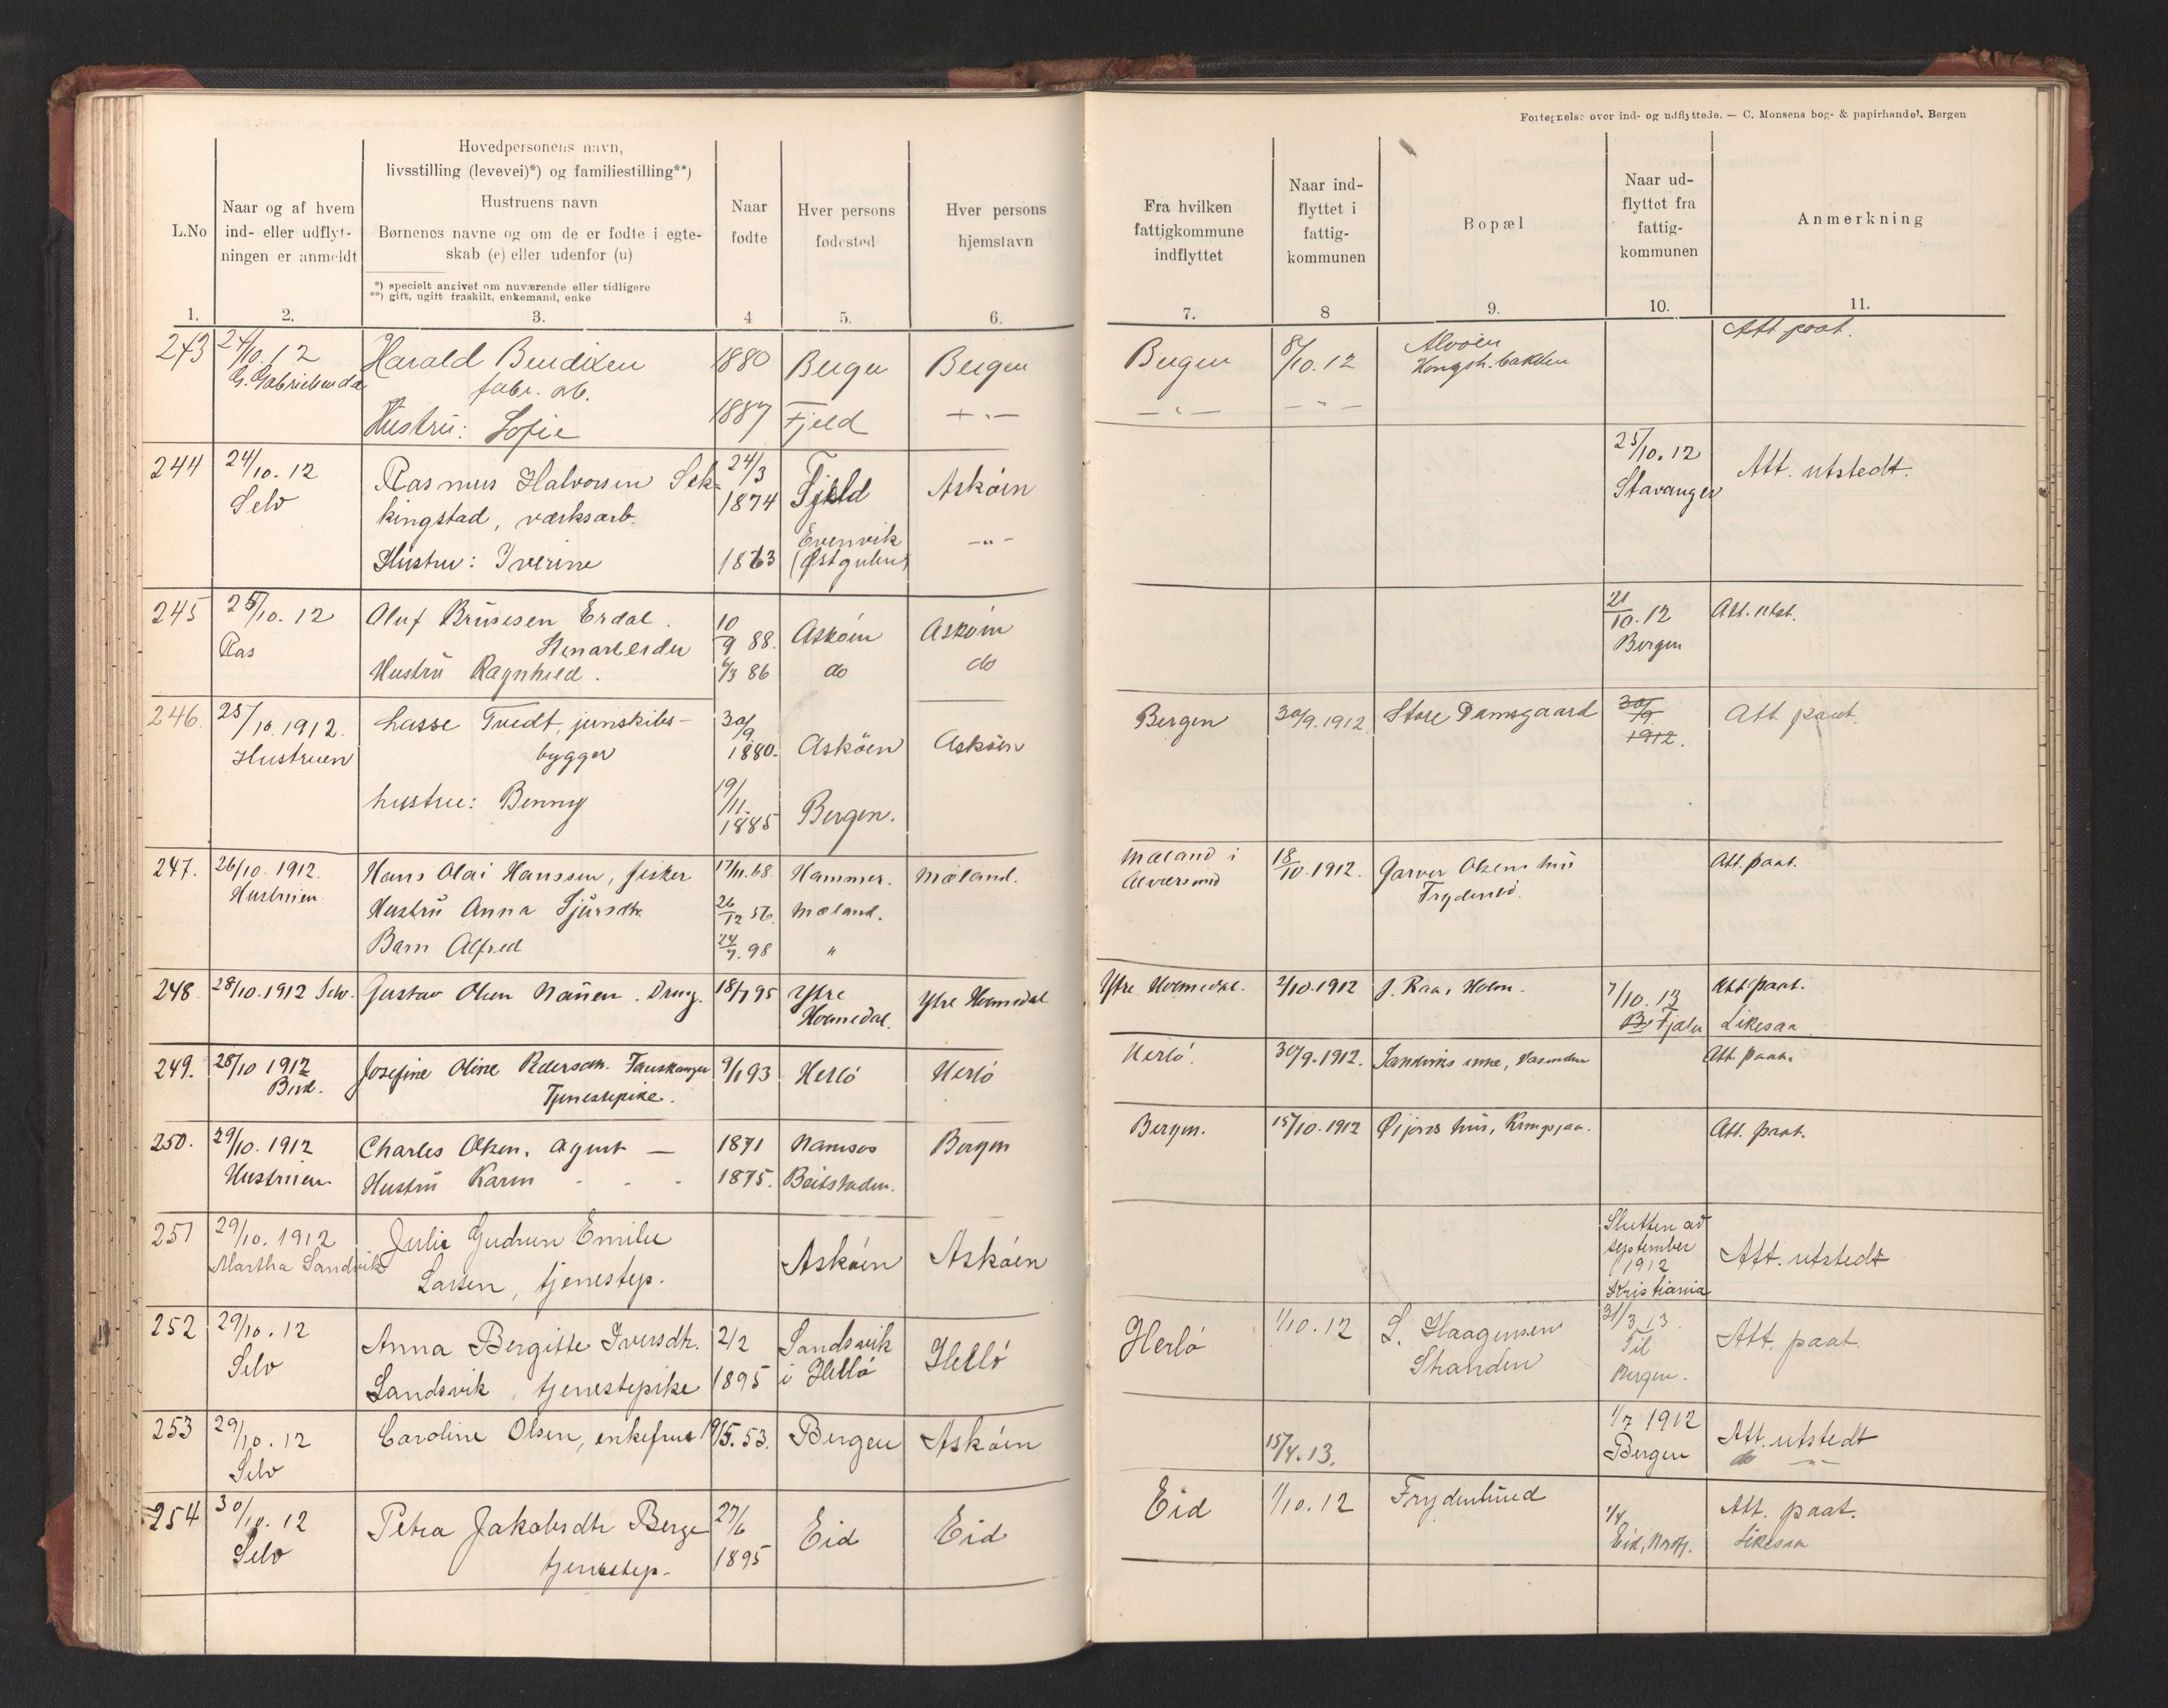 Fortegnelse over ind- og udflyttede. — C. Monsens bog- & papirhandel, Bergen
L.No
Naar og af hvem
ind- eller udflyt-
ningen er anmeldt
Hovedpersonens navn,
livsstilling (levevei)*) og familiestilling**)
Hustruens navn
Børnenes navne og om de er fødte i egte-
skab (e) eller udenfor (u)
*) specielt angivet om nuværende eller tidligere
**) gift, ugift fraskilt, enkemand, enke
Naar
fødte
Hver persons
fødested
Hver persons
hjemstavn
Fra hvilken
fattigkommune
indflyttet
Naar ind-
flyttet i
fattig-
kommunen
Bopæl
Naar ud-
flyttet fra
fattig-
kommunen
Anmerkning
1. 2. 3. 4 5. 6. 7. 8 9. 10. 11.
243 24/10.12 Harald Bendixen 1880 Bergen Bergen Bergen 8/10.12 Alvöen Att paat.
fabr. arb.
Hustru: Sofie 1887 Fjeld — " — — " — — " —
244 24/10.12 Rasmus Halvorsen Sek- 24/3 1874 Fjeld Askøen 25/10.12 Att. utstedt.
Selv kingstad, værksarb. Stavanger
Hustru: Iverine 1863 Evenvik (Østgulen) — " —
245 25/10.12 Oluf Brúsesen Erdal. 10/9 88. Askøen Askøen 21/10.12 Att. utst.
Ras Stenarbeider Bergen
Hustrú Ragnhild. 6/3 86 do do
246. 25/10.1912. Lasse Tvedt, jernskibs- 30/9 1880. Askøen Askøen Bergen 30/9.1912. Store Damsgaard 30/9 1912. Att. paat.
Hustruen bygger
hustru: Benny 19/11 1885 Bergen.
247. 26/10.1912. Hans Olai Hanssen, fisker 17/11.68 Hammer. Mæland. Mæland i 18/10.1912. Garver Olsens hús Att. paat.
Hustrúen Alversund Frydenlö
Hustrú Anna Sjúrsdtr. 26/12 56. Mæland.
Barn Alfred 24/7.98 "
248. 28/10.1912 Selv. Gustav Olsen Nåúen. Dreng. 18/7 95 Ytre Holmedal. Ytre Holmedal Ytre Holmedal. 2/10.1912 J. Raa, Holm. 7/10.13 Att. paat.
Fjaler Likesaa
249. 28/10 1912 Josefine Oline Pedersdtr. Fauskanger 9/1 93 Herlö Herlö Herlö. 30/9.1912. Att. paat.
Bud. Tjenestepike.
250. 29/10.1912 Charles Olsen, agent — 1871 Namsos Bergen Bergen. 15/10.1912 Att. paat.
Hustrúen Hustrú Karen 1875. Beitstaden.
251 29/10.1912 Julie Gudrun Emilie Askøen Askøen Slutten av september 1912 Att. utstedt
Martha Sandvik Larsen, tjenestep. Kristiania
252 29/10.12 Anna Bergitte Iversdtr. 2/2 1895 Landsvik i Herlö Herlö Herlö 1/10.12 L. Haagensen 31/3.13. Att. paat.
Selv Landsvik, tjenestepike Stranden Til Bergen.
253 29/10.12 Caroline Olsen, enkefrue 19/5.53. Bergen Askøen 15/4.13. 1/7 1912 Att. utstedt
Selv Bergen do — " —
254 30/10.12 Petra Jakobsdtr Berge 27/6 1895 Eid Eid Eid 1/10.12 Frydenlund 1/4 Att. paat.
Selv tjenestep. Eid, Nordfj. Likesaa